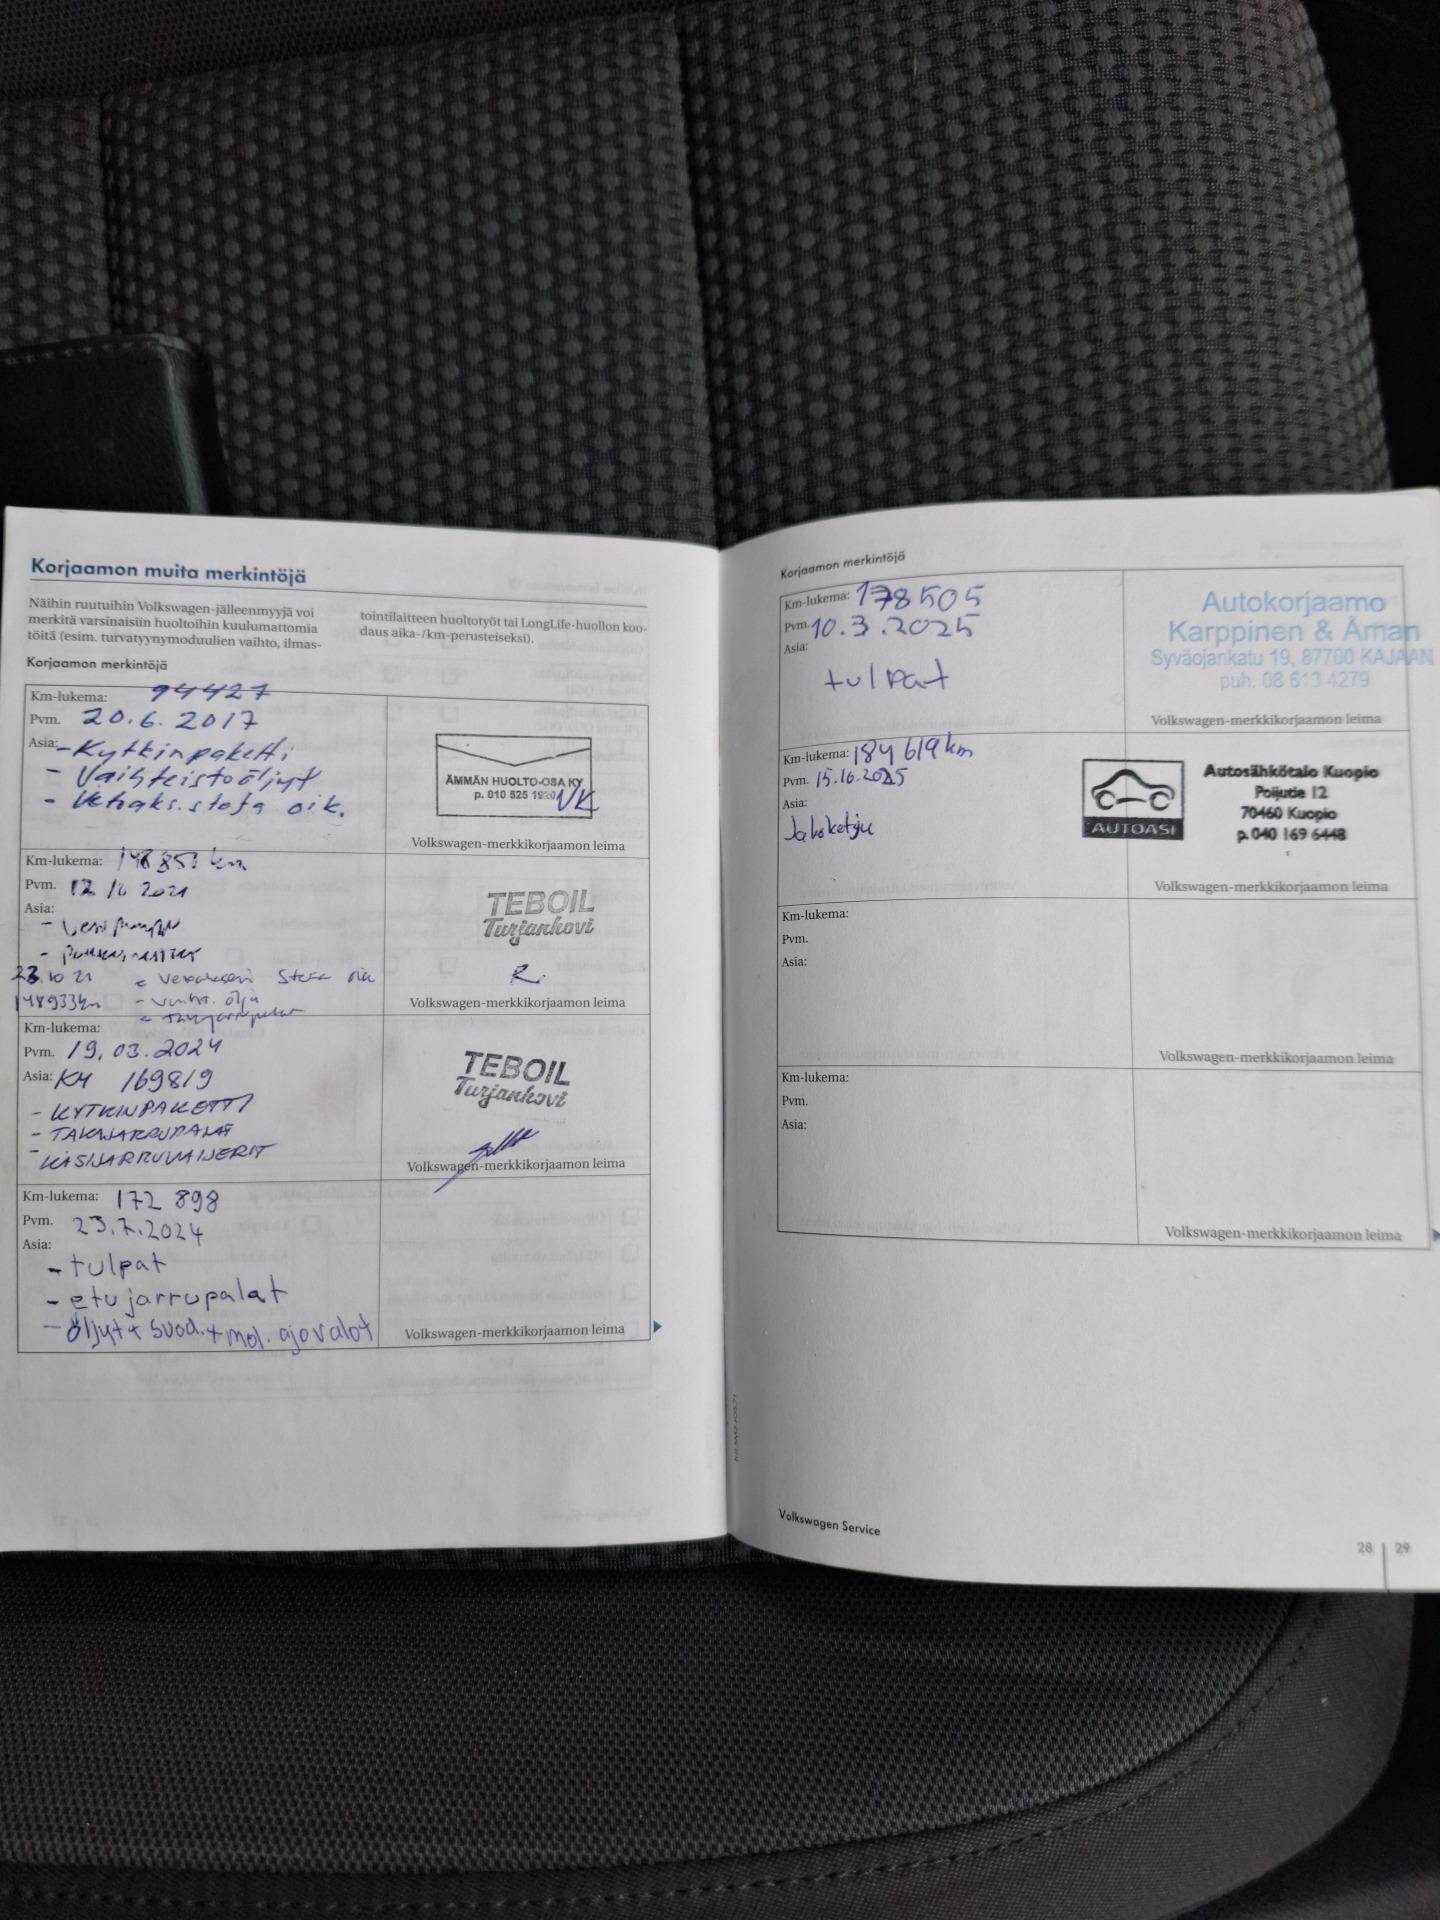 Korjaamon muita merkintöjä
Näihin ruutuihin Volkswagen-jälleenmyyjä voi
merkitä varsinaisiin huoltoihin kuulumattomia
töitä (esim. turvatyynymoduulien vaihto, ilmas-
tointilaitteen huoltotyöt tai LongLife-huollon koo-
daus aika-/km-perusteiseksi).
Korjaamon merkintöjä
Km-lukema: 94427
Pvm. 20.6.2017
Asia: - Kytkinpaketti
- Vaihteistoöljyt
- Vetoaks.stefa oik.
ÄMMÄN HUOLTO-OSA KY
p. 010 525
VK
Volkswagen-merkkikorjaamon leima
Km-lukema: km
Pvm. 2021
Asia:
- Vesipumppu
-
23.10 21 - Stefa oik
148933km - öljy
- takajarrupalat
TEBOIL
Turjankovi
R.
Volkswagen-merkkikorjaamon leima
Km-lukema:
Pvm. 19.03.2024
Asia: KM 169819
- KYTKINPAKETTI
- TAKAJARRUPALAT
- KÄSIJARRUVAIJERIT
TEBOIL
Turjankovi
Volkswagen-merkkikorjaamon leima
Km-lukema: 172 898
Pvm. 23.7.2024
Asia:
- tulpat
- etujarrupalat
- öljyt + suod. + mol. ajovalot
Volkswagen-merkkikorjaamon leima
Korjaamon merkintöjä
Km-lukema: 178505
Pvm. 10.3.2025
Asia:
tulpat
Autokorjaamo
Karppinen & Äman
Syväojankatu 19, 87700 KAJAAN
puh. 08 613 4279
Volkswagen-merkkikorjaamon leima
Km-lukema: 184 619 km
Pvm. 15.10.2025
Asia:
Jakoketju
AUTOASI
Autosähkötalo Kuopio
Poijutie 12
70460 Kuopio
p. 040 169 6448
Volkswagen-merkkikorjaamon leima
Km-lukema:
Pvm.
Asia:
Volkswagen-merkkikorjaamon leima
Km-lukema:
Pvm.
Asia:
Volkswagen-merkkikorjaamon leima
Volkswagen Service
28 | 29